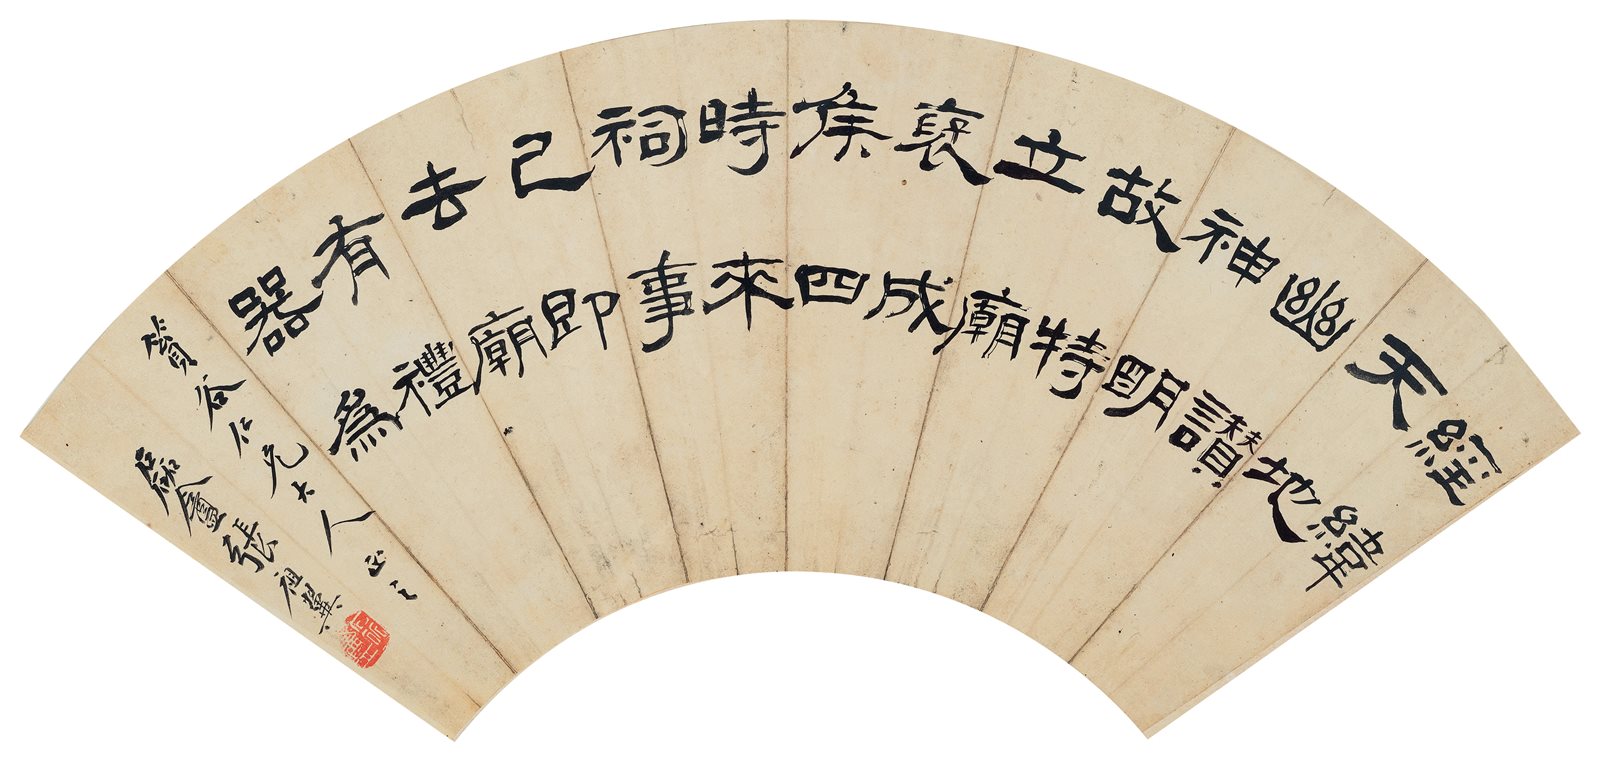 經緯
天地
幽讚
神明
故特
立廟
襃成
侯四
時來
祠事
已即
去廟
有禮
器為
篔谷仁兄大人正之
磊盦張祖翼